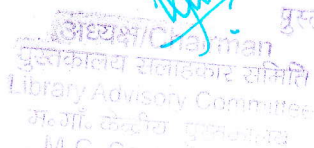 पुस्त
अध्यक्ष/Chairman
पुस्तकालय सलाहकार समिति
Library Advisory Committee
म.गाँ. केन्द्रीय पुस्तकालय
M.G.